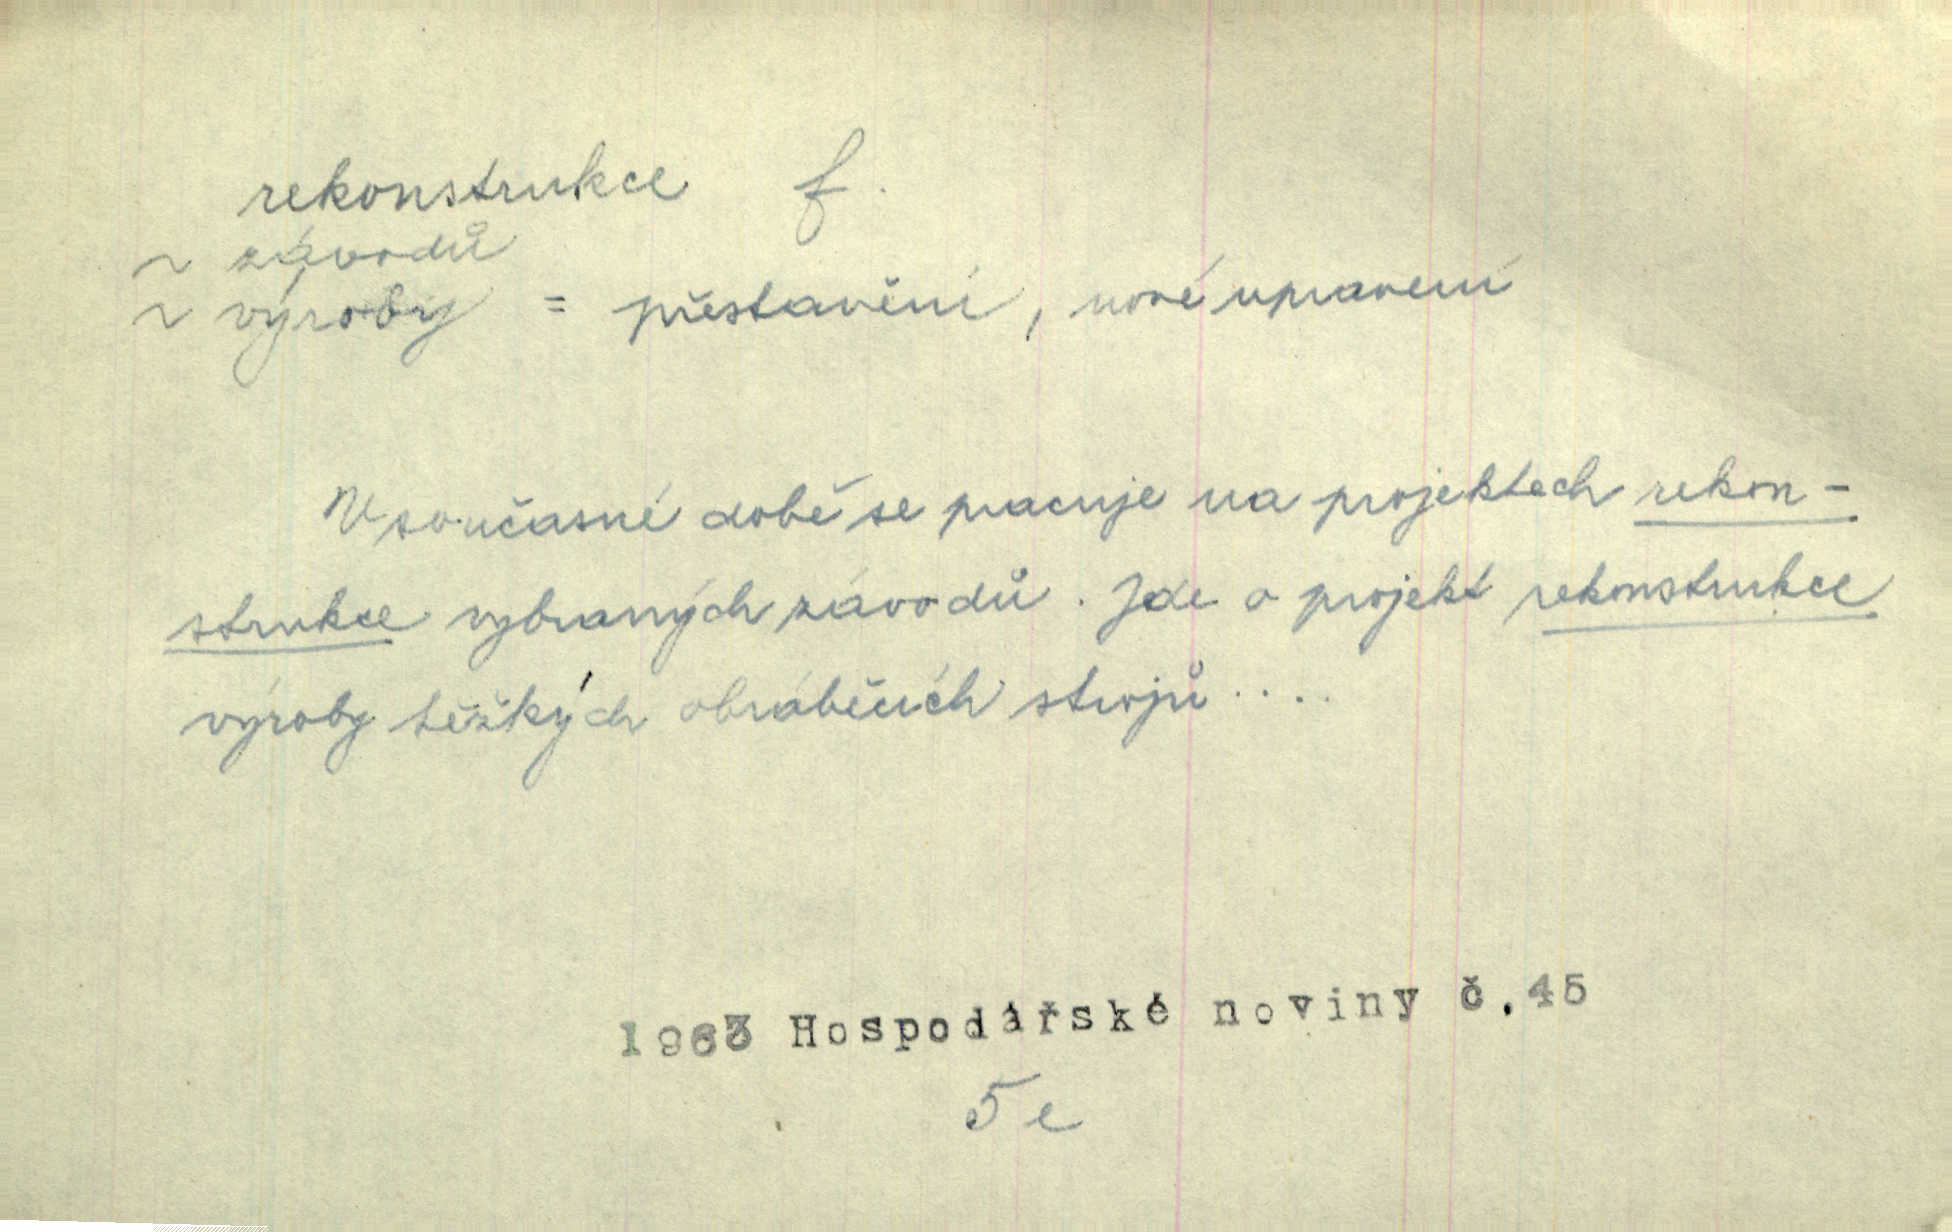 rekonstrukce f.
~ závodů
~ výroby = přestavění, nové upravení
V současné době se pracuje na projektech rekon-
strukce vybraných závodů. Jde o projekt rekonstrukce
výroby těžkých obráběcích strojů....
1963 Hospodářské noviny č.45
5 e